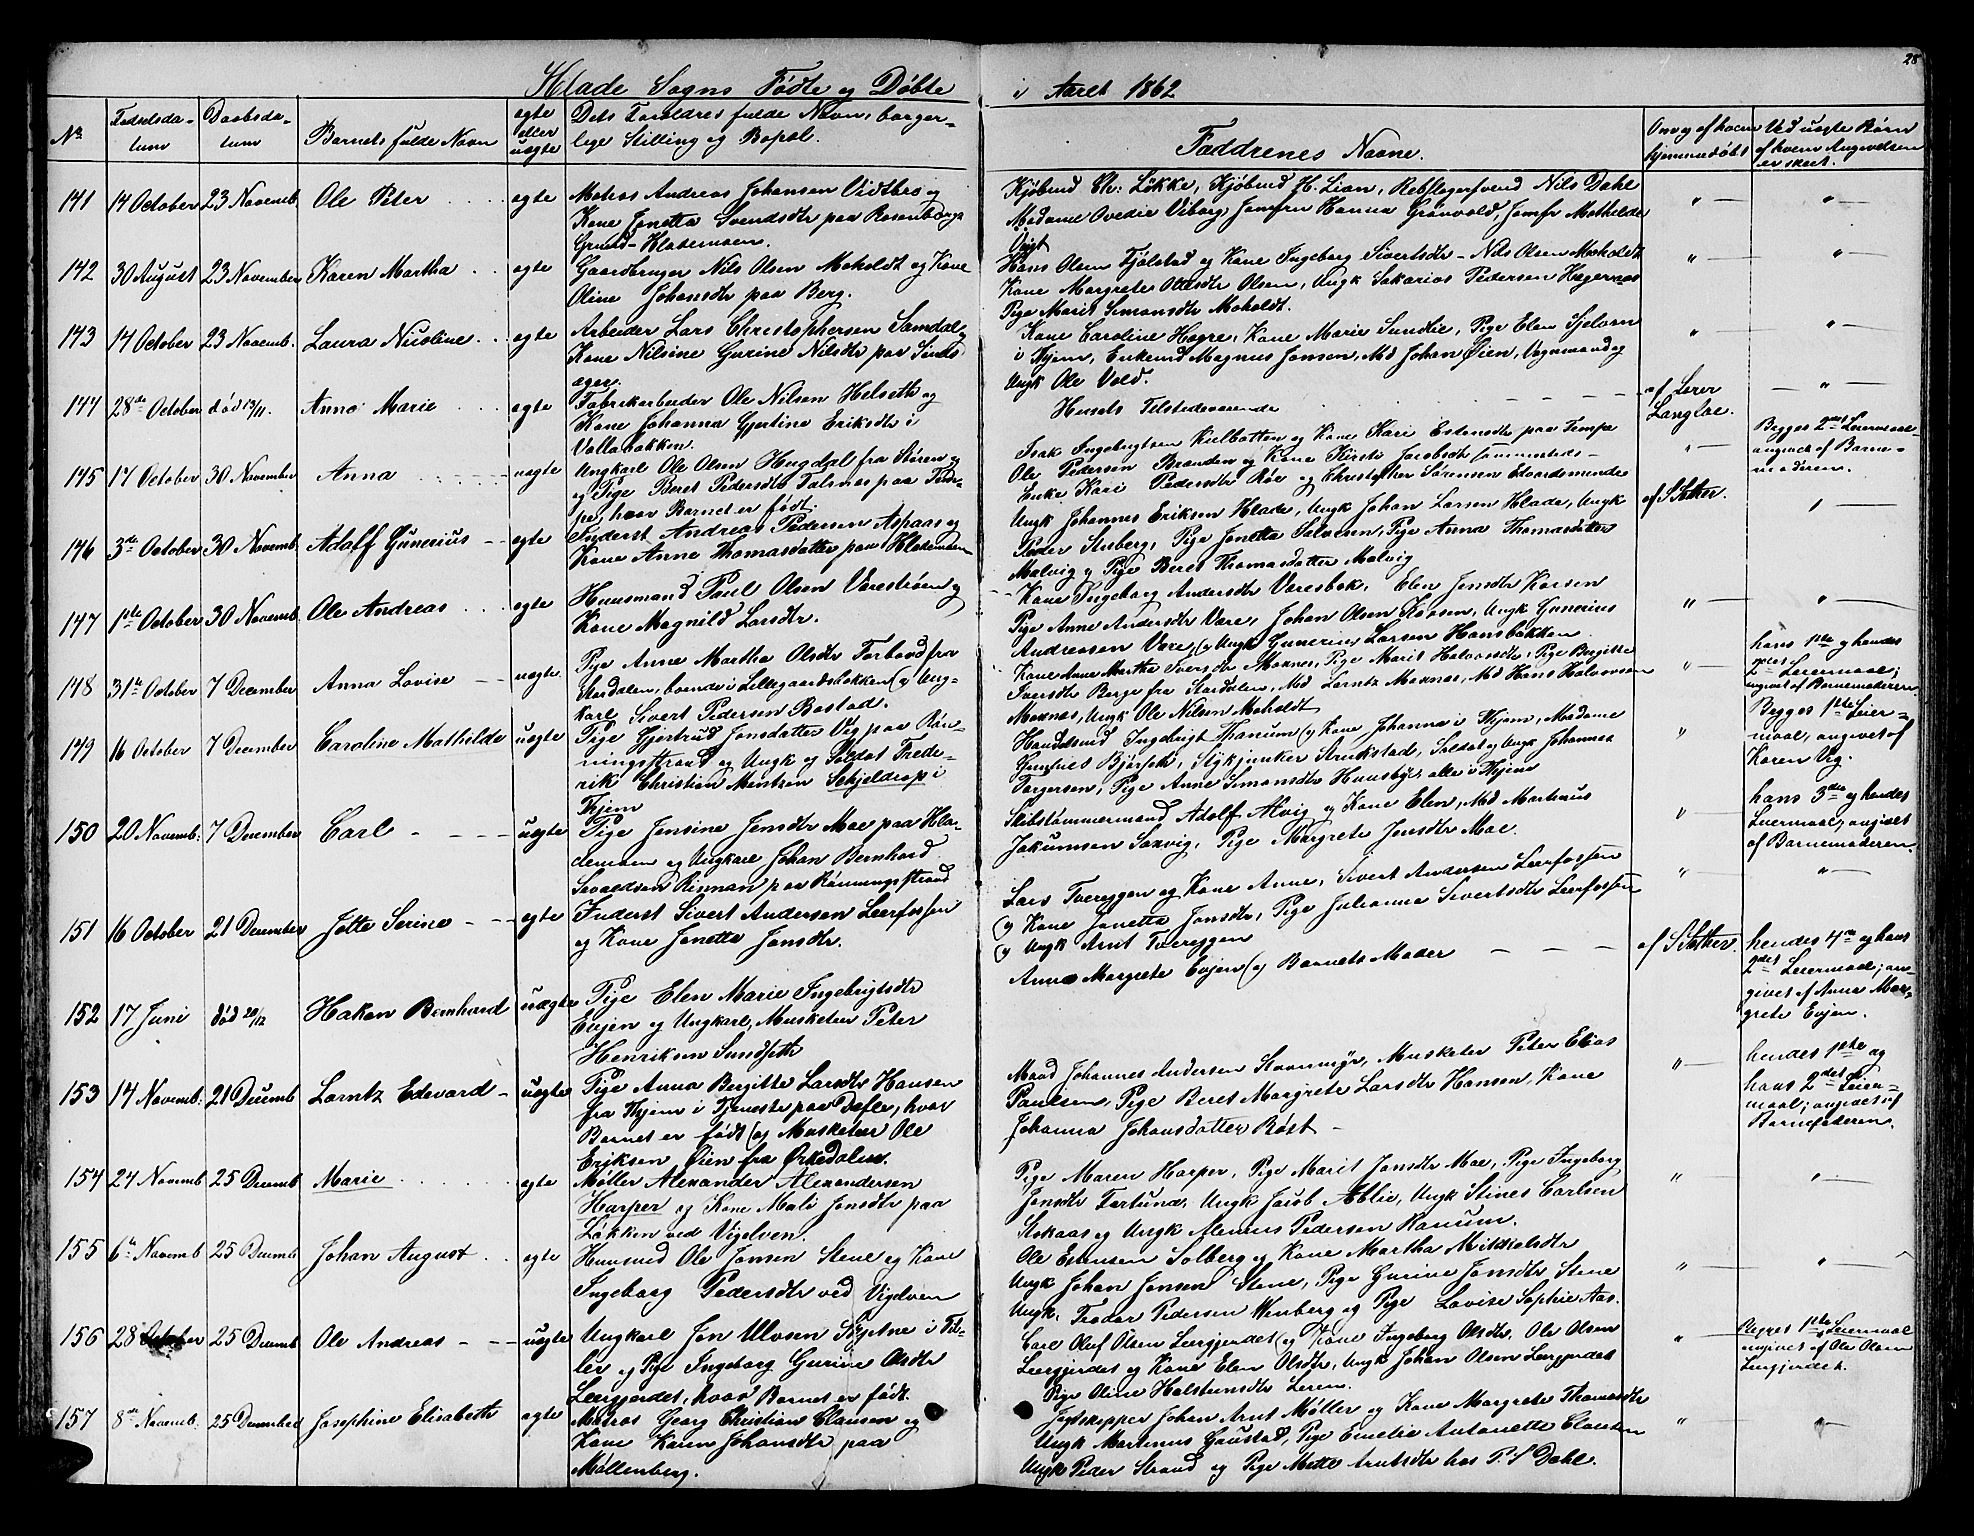 28
Hlade Sogns Fødte og Døbte i Aaret 1862
No
Fødselsdatum
Daabsdatum
Barnets fulde Navn
egte eller uegte
Dets Foreldres fulde Navn, borgerlige Stilling og Bopel.
Faddrenes Navne.
Om og af hvem hjemmedøbt
Ved uegte Børn af hvem Angivelsen er skeet.
141 14 October 23 Novemb. Ole Peter egte Matros Andreas Johansen Vidtbro og
Kone Jonetta Svendsdtr paa Rosenborgs
Grund-Hlademoen.
Kjøbmd Chr: Løkke, Kjøbmd H. Lian, Rebslagersvend Nils Dahl
Madame Ovedie Viborg, Jomfru Hanna Grønvold, Jomfr Mathilde
Voigt
142 30 August 23 November Karen Martha egte Gaardbruger Nils Olsen Moholdt og Kone
Oline Johansdtr paa Berg.
Hans Olsen Fjølstad og Kone Ingeborg Sivertsdtr - Nils Olsen Moholdt
Kone Margrete Olsdtr Olsen, Ungk Sakarias Pedersen Hegernes
Pige Marit Simonsdtr Moholdt.
143 14 October 23 Novemb. Laura Nicoline egte Arbeider Lars Christophersen Samdal og
Kone Nilsine Gurine Nilsdtr paa Sindsager.
Kone Caroline Hagre, Kone Marie Sundlie, Pige Elen Sjelven
i Thjem, Enkemd Magnus Jonsen, Md Johan Øien, Vognmand og
Ungk Ole Vold.
144 28de October død 13/11. Anne Marie egte Fabrikarbeider Ole Nilsen Helseth og
Kone Johanna Gjertine Eriksdtr i
Vollabakken.
Husets Tilstedeværende
af Lærer
Langlae.
145 17 October 30 November Anna uegte Ungkarl Ole Olsen Hugdal fra Støren og
Pige Beret Pedersdtr Talsnes paa Tempe, hvor Barnet er født.
Isak Ingebrigtsen Kielbotten og Kone Kari Estensdtr paa Tempe
Ole Pedersen Branden og Kone Kirsti Jacobsdtr sammesteds -
Enke Kari Pedersdtr Røe og Christopher Sørensen Edvardsmunde
Begges 2det Leiermaal
angivet af Barnemoderen.
146 3de October 30 Novemb. Adolf Gunerius egte Inderst Andreas Pedersen Aspaas og
Kone Anne Thomasdatter paa Hlademoen
Ungk Johannes Eriksen Hlade, Ungk Johan Larsen Hlade, Ungk
Peder Stuberg, Pige Jonetta Salvesen, Pige Anna Thomasdatter
Malvig og Pige Beret Thomasdatter Malvig
af S Sæther.
147 1ste October 30 Novemb. Ole Andreas egte Huusmand Paul Olsen Værestrøen og
Kone Magnild Larsdtr.
Kone Ingeborg Andersdtr Væresbok, Elen Jensdtr Korsen
Pige Anne Andersdtr Være, Johan Olsen Korsen, Ungk Gunerius
Andreasen Være, og Ungk Gunerius Larsen Hansbakken
148 31te October 7 December Anna Lovise uegte Pige Anne Martha Olsdtr Forbord fra
Skordalen, boende i Lillegaardsbakken og Ungkarl Sivert Pedersen Bostad.
Kone Anne Martha Iversdtr Moxnes, Pige Marit Halvorsdtr, Pige Birgitte
Iversdtr Berge fra Stordalen, Md Lorntz Moxnes, Md Hans Halvorsen
Moxnes, Ungk Ole Nilsen Moholdt
hans 1ste og hendes
2det Leiermaal;
angivet af Barnemoderen.
149 16 October 7 December Caroline Mathilde uegte Pige Gjertrud Jonsdatter Vig paa Rønningsstrand og Ungk og Soldat Frederik Christian Mentzen Schjeldrop i
Thjem
Handelsmd Ingebrigt Hanum og Kone Johanna i Thjem, Madame
Gunfred Bjørseth, Stykjunker Strukstad, Soldat og Ungk Johannes
Torgersen, Pige Anne Simonsdtr Huusbye, alle i Thjem
Begges 1ste Leiermaal, angivet af
Karen Vig.
150 20 Novemb: 7 December Carl uegte Pige Jensine Jensdtr Moe paa Hlademoen og Ungkarl Johan Bernhard
Sevaldsen Rinnan paa Rønningsstrand
Skibstømmermand Adolf Alvig og Kone Elen, Md Martinus
Jakumsen Saxvig, Pige Margrete Jensdtr Moe.
hans 3die og hendes
Leiermaal, angivet
af Barnemoderen.
151 16 October 21 December Jette Serine egte Inderst Sivert Andersen Leerfossen
og Kone Jonetta Jonsdtr.
Lars Tvereggen og Kone Anne, Sivert Andersen Leerfossen
og Kone Jonetta Jonsdtr, Pige Julianna Sivertsdtr Leerfossen
og Ungk Arnt Tvereggen
152 17 Juni død 20/12 Hakon Bernhard uægte Pige Elen Marie Ingebrigtsdtr
Evjen og Ungkarl, Musketeer Peter
Henriksen Sundseth
Anne Margrete Evjen og Barnets Moder
af S Sæther.
hendes 4de og hans
2det Leiermaal; angivet af Anna Margrete Evjen.
153 14 Novemb: 21 Decemb Lorntz Edevard uegte Pige Anna Birgitte Larsdtr Hansen
fra Thjem i Tjeneste paa Defle, hvor
Barnet er født og Musketeer Ole
Eriksen Øien fra Ørkedalen.
Mand Johannes Andersen Skovmyr, Musketer Peter Elias
Paulsen, Pige Beret Margrete Larsdtr Hansen, Kone
Johanna Johansdatter Røst -
hendes 1ste og
hans 2det Leiermaal; angivet af
Barnefaderen.
154 24 Novemb 25 Decemb Marie egte Møller Alexander Alexandersen
Harper og Kone Mali Jonsdtr paa
Løkken ved Vigelven.
Pige Maren Harper, Pige Marit Jonsdtr Moe, Pige Ingeborg
Jonsdtr Fortuna, Ungk Jacob Ablie, Ungk Stines Carlsen
Stokaas og Ungk Alerius Pedersen Ranum.
155 6te Novemb 25 Decemb Johan August egte Huusmd Ole Jonsen Stene og Kone
Ingeborg Pedersdtr ved Vigelven
Ole Estensen Solberg og Kone Martha Mikkelsdtr
Ungk Johan Jonsen Stene, Pige Gurine Jonsdtr Stene
Ungk. Teodor Pedersen Wenberg og Pige Lovise Sophie Aas.
156 28 October 25 Decemb Ole Andreas uegte Ungkarl Jon Ulvsen Skjetne i Tiller og Pige Ingeborg Gurine Olsdtr
Leergjerdet, hvor Barnet er født.
Carl Oluf Olsen Leergjerdet og Kone Ingeborg Olsdtr, Ole Olsen
Leergjerdet og Kone Elen Olsdtr, Ungk Johan Olsen Leergjerdet
Pige Oline Halstensdtr Leren.
Begges 1ste Leiermaal
angivet af Ole Olsen
Leergjerdet.
157 8de Novemb. 25 Decembed Josephine Elisabeth egte Matros Georg Christian Clausen og
Kone Karen Johansdtr paa
Møllenberg.
Jagtskipper Johan Arnt Møller og Kone Margrete Thomasdtr
Ungk Martinus Gaustad, Pige Emelie Antonette Clausen
Ungk Peder Strand og Pige Mette Arntsdtr hos P. S Dahl.